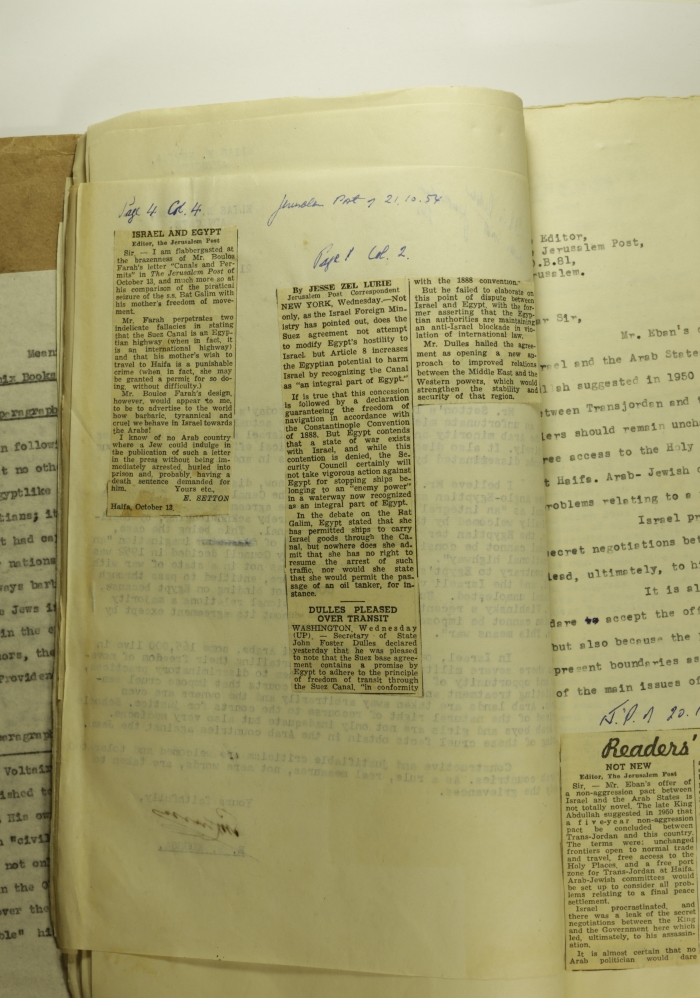 Page 4 Col. 4
Jerusalem Post of 21.10.54
Page 1 Col. 2.
ISRAEL AND EGYPT
Editor, the Jerusalem Post
Sir, — I am flabbergasted at
the brazenness of Mr. Boulos
Farah's letter "Canals and Per-
mits" in The Jerusalem Post of
October 13, and much more so at
his comparison of the piratical
seizure of the s.s. Bat Galim with
his mother's freedom of move-
ment.
Mr. Farah perpetrates two
indelicate fallacies in stating
that the Suez Canal is an Egyp-
tian highway (when in fact, it
is an international highway)
and that his mother's wish to
travel to Haifa is a punishable
crime (when in fact, she may
be granted a permit for so do-
ing, without difficulty.)
Mr. Boulos Farah's design,
however, would appear to me,
to be to advertise to the world
how barbaric, tyrannical and
cruel we behave in Israel towards
the Arabs!
I know of no Arab country
where a Jew could indulge in
the publication of such a letter
in the press without being im-
mediately arrested, hurled into
prison and, probably, having a
death sentence demanded for
him. Yours etc.,
E. SETTON
Haifa, October 13.
By JESSE ZEL LURIE
Jerusalem Post Correspondent
NEW YORK, Wednesday.—Not
only, as the Israel Foreign Min-
istry has pointed out, does the
Suez agreement not attempt
to modify Egypt's hostility to
Israel, but Article 8 increases
the Egyptian potential to harm
Israel by recognizing the Canal
as "an integral part of Egypt."
It is true that this concession
is followed by a declaration
guaranteeing the freedom of
navigation in accordance with
the Constantinople Convention
of 1888. But Egypt contends
that a state of war exists
with Israel, and while this
contention is denied, the Se-
curity Council certainly will
not take vigorous action against
Egypt for stopping ships be-
longing to an "enemy power"
in a waterway now recognized
as an integral part of Egypt.
In the debate on the Bat
Galim, Egypt stated that she
has permitted ships to carry
Israel goods through the Ca-
nal, but nowhere does she ad-
mit that she has no right to
resume the arrest of such
traffic, nor would she state
that she would permit the pas-
sage of an oil tanker, for in-
stance.
DULLES PLEASED
OVER TRANSIT
WASHINGTON, Wednesday
(UP). — Secretary of State
John Foster Dulles declared
yesterday that he was pleased
to note that the Suez base agree-
ment contains a promise by
Egypt to adhere to the principle
of freedom of transit through
the Suez Canal, "in conformity
with the 1888 convention."
But he failed to elaborate on
this point of dispute between
Israel and Egypt, with the for-
mer asserting that the Egyp-
tian authorities are maintaining
an anti-Israel blockade in vio-
lation of international law.
Mr. Dulles hailed the agree-
ment as opening a new ap-
proach to improved relations
between the Middle East and the
Western powers, which would
strengthen the stability and
security of that region.
Editor,
Jerusalem Post,
.B.81,
rusalem.
ar Sir,
Mr. Eban's
el and the Arab State
ah suggested in 1950
tween Transjordan and
iers should remain unch
ree access to the Holy
t Haifa. Arab- Jewish
roblems relating to a
Israel pr
ecret negotiations bet
lead, ultimately, to hi
It is al
dare to accept the of
but also because the
present boundaries as
of the main issues of
J.P. of 20.1
Readers'
NOT NEW
Editor, The Jerusalem Post
Sir, — Mr. Eban's offer of
a non-aggression pact between
Israel and the Arab States is
not totally novel. The late King
Abdullah suggested in 1950 that
a five-year non-aggression
pact be concluded between
Trans-Jordan and this country.
The terms were: unchanged
frontiers open to normal trade
and travel, free access to the
Holy Places, and a free port
zone for Trans-Jordan at Haifa.
Arab-Jewish committees would
be set up to consider all prob-
lems relating to a final peace
settlement.
Israel procrastinated, and
there was a leak of the secret
negotiations between the King
and the Government here which
led, ultimately, to his assassin-
ation.
It is almost certain that no
Arab politician would dare
Mean
ix Books
paragraph
n followi
t no oth
gyptlike
tians; i
t had oa
nations
ways bart
e Jews i
in the c
ors, the
Providen
aragraph
Voltair
ished to
His ow
"civil
not on
n the O
ver the
ble" hi